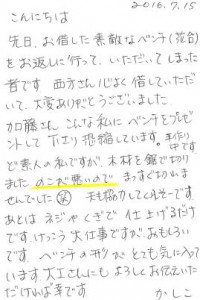 2016.7.15
こんにちは
先日、お借した素敵なベンチ(花台)
をお返しに行って、いただいてしまった
者です 西方さん心よく借していただ
いて、大変ありがとうございました
加藤さん こんな私に ベンチをプレゼ
ントして下さり恐縮しています。手作り中です
ど素人の私ですが、木材を鋸で切り
ました のこが悪いので まっすぐ切れま
せんでした 笑 夫も協力してくれそうです
あとは ネジャくぎで 仕上げるだけ
です。けっこう大仕事ですが、おもしろい
です。ベンチの形がとても気に入って
います 大工さんにも よろしくお伝えいた
だければ幸です かしこ